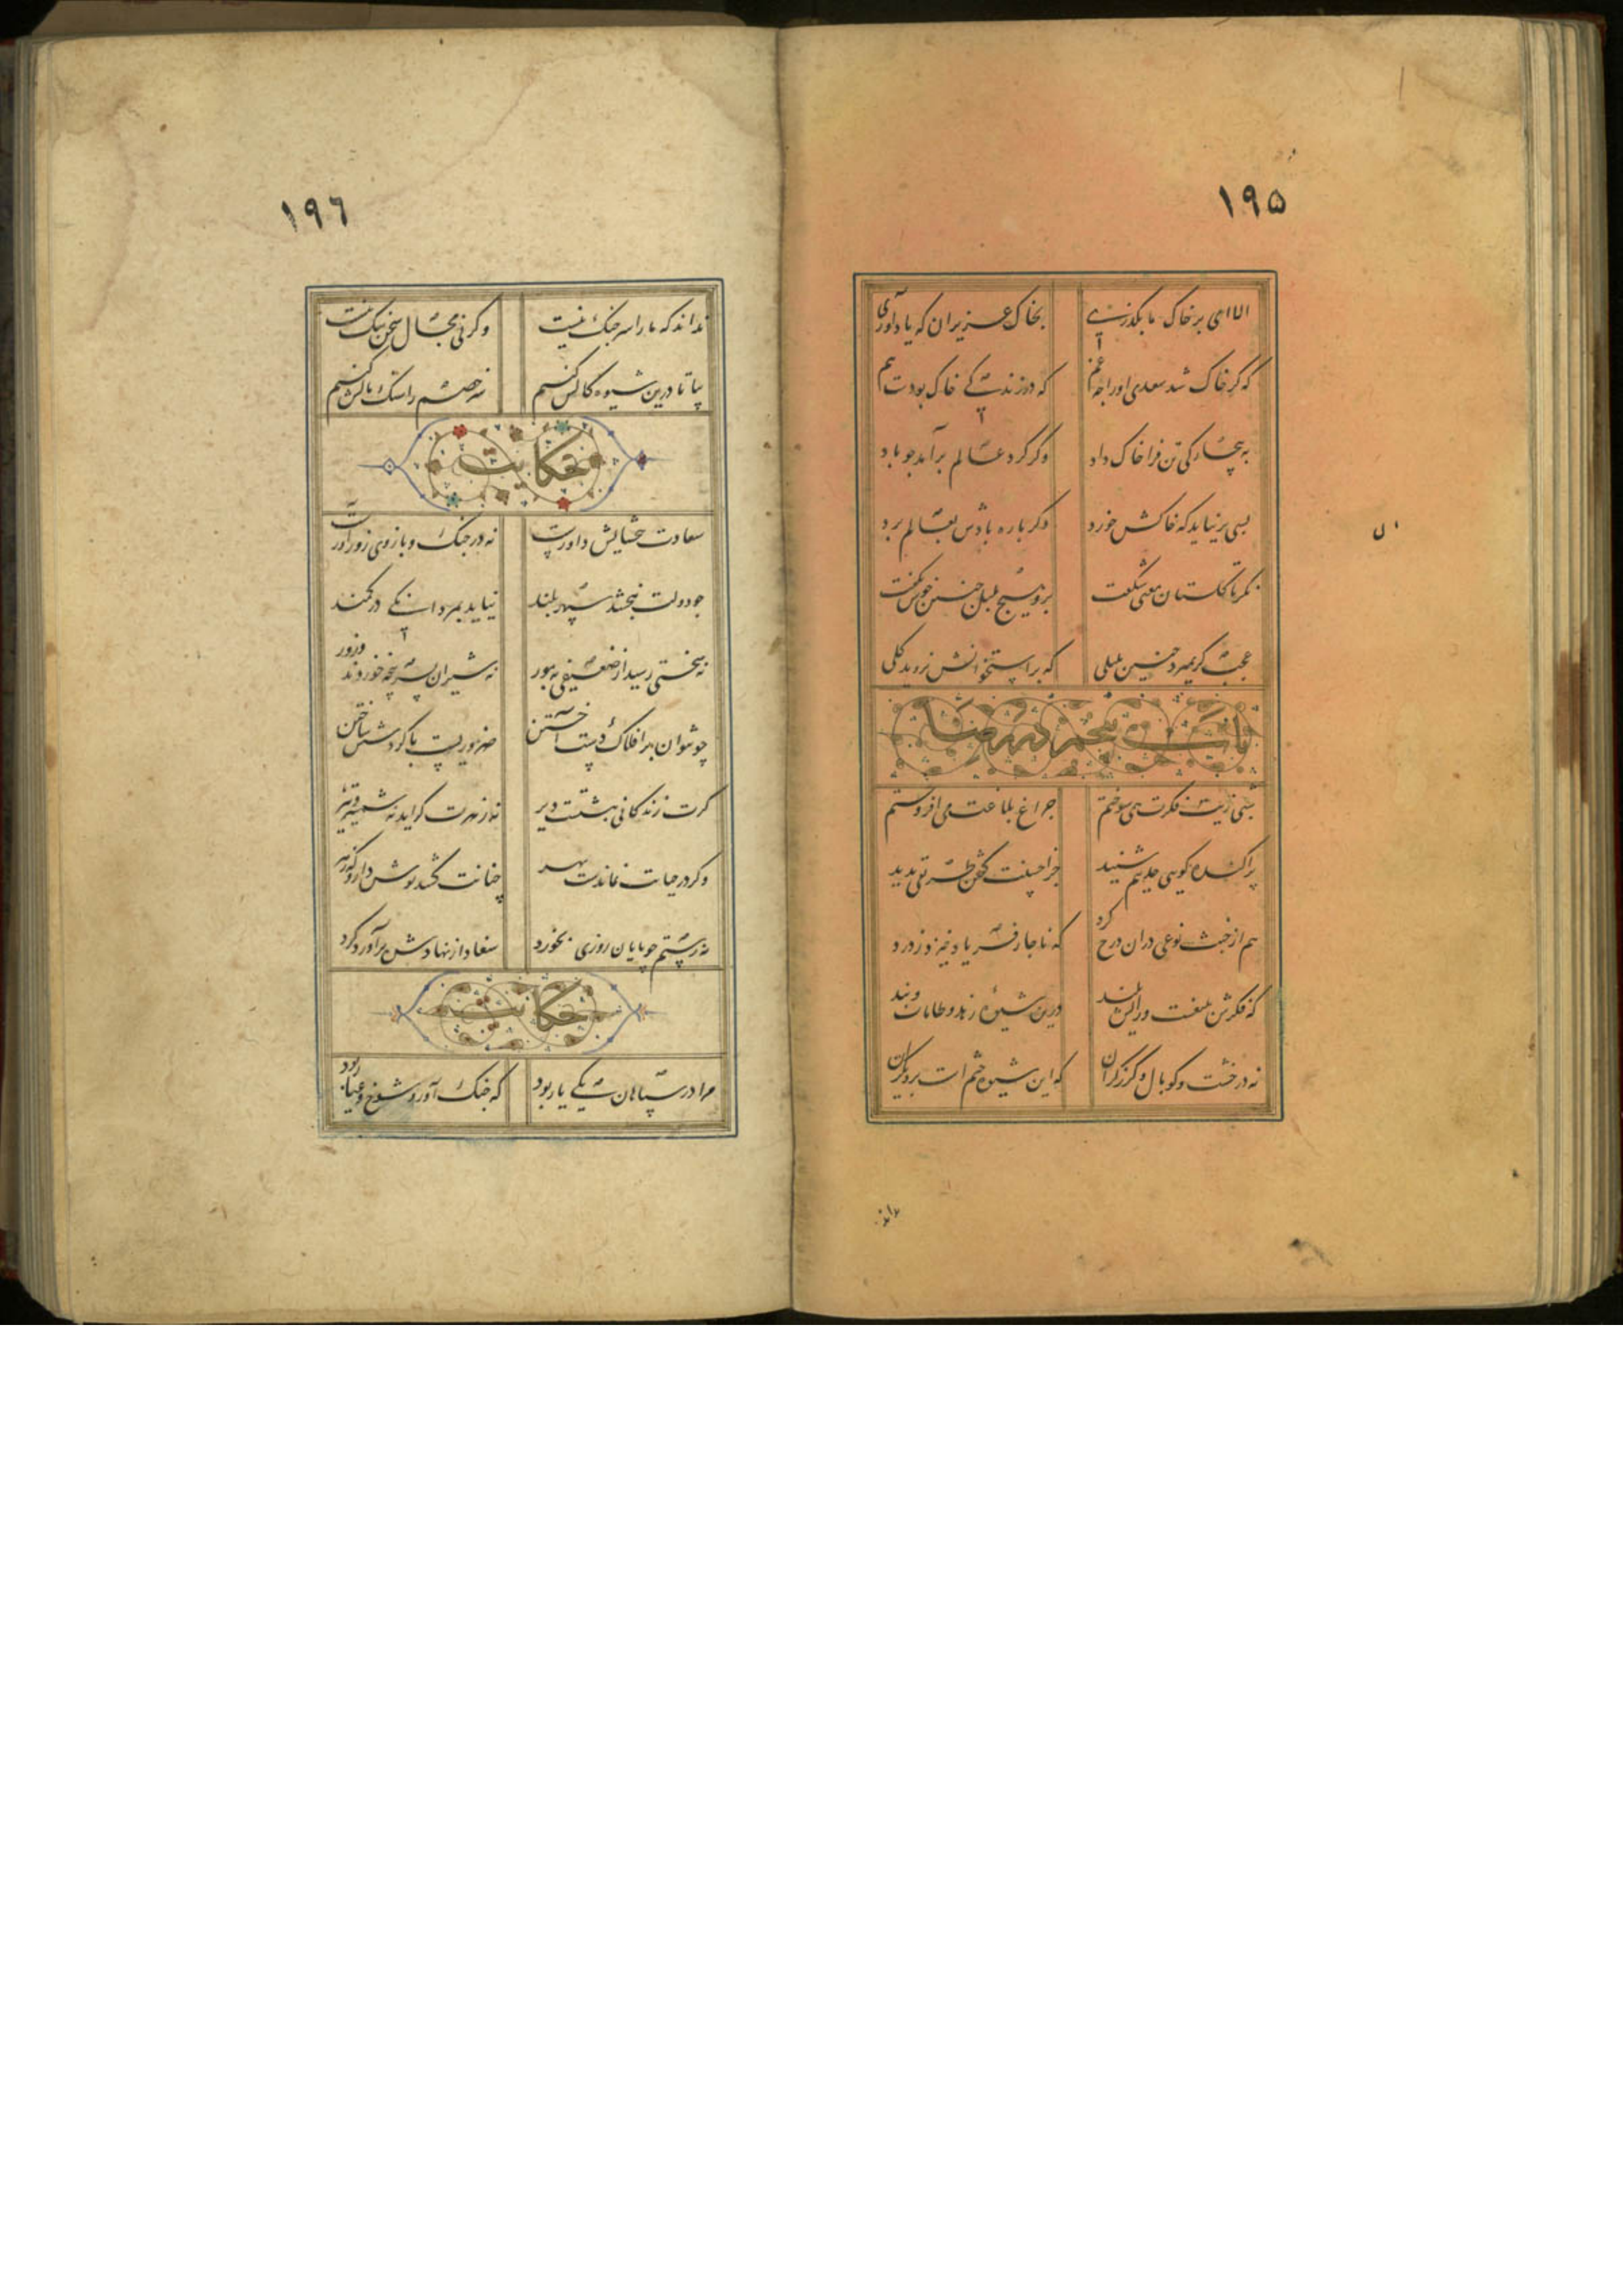 ۱۹۵
الا ای که بر خاک ما بگذری بخاک عزیزان که یاد آوری
که گر خاک شد سعدی او را چه غم که در زندگی خاک بودست هم
به بیچارگی تن فرا خاک داد وگر گرد عالم برآمد چو باد
بسی برنیاید که خاکش خورد دگر باره بادش بعالم برد
نگر تا گلستان معنی شکفت برو هیچ بلبل چنین خوش نگفت
عجب گر بمیرد چنین بلبلی که بر استخوانش نروید گلی
باب پنجم در رضا
شبی زیت فکرت همی سوختم چراغ بلاغت می افروختم
پراکنده گویی حدیثم شنید جز احسنت گفتن طریقی ندید
هم از خبث نوعی در آن درج کرد که ناچار فریاد خیزد ز درد
که فکرش بلیغست و رایش بلند درین شیوه زهد و طامات و پند
نه در خشت و کوپال و گرز گران که این شیوه ختم است بر دیگران
نداند
۱۹٦
نداند که ما را سر جنگ نیست وگرنی مجال سخن تنگ نیست
بیا تا درین شیوه چالش کنیم سر خصم را سنگ بالش کنیم
حکایت
سعادت ببخشایش داورست نه در جنگ و بازوی زورآورست
چو دولت نبخشد سپهر بلند نیاید بمردانگی در کمند
نه سختی رسید از ضعیفی به مور نه شیران بسرپنجه خوردند و زور
چو نتوان بر افلاک دست آختن ضروریست با گردشش ساختن
گرت زندگانی نبشتست دیر نه مارت گزاید نه شمشیر و تیر
وگر در حیات نماندست بهر چنانت کشد نوش دارو که زهر
نه رستم چو پایان روزی بخورد شغاد از نهادش برآورد گرد
حکایت
مرا در سپاهان یکی یار بود که جنگ آور و شوخ و عیار بود